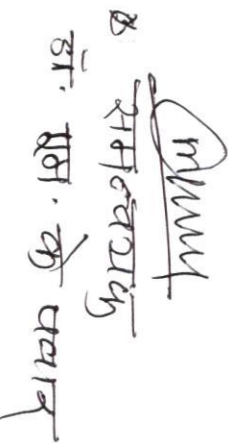 समन्वयक
डॉ. एम. के पवार